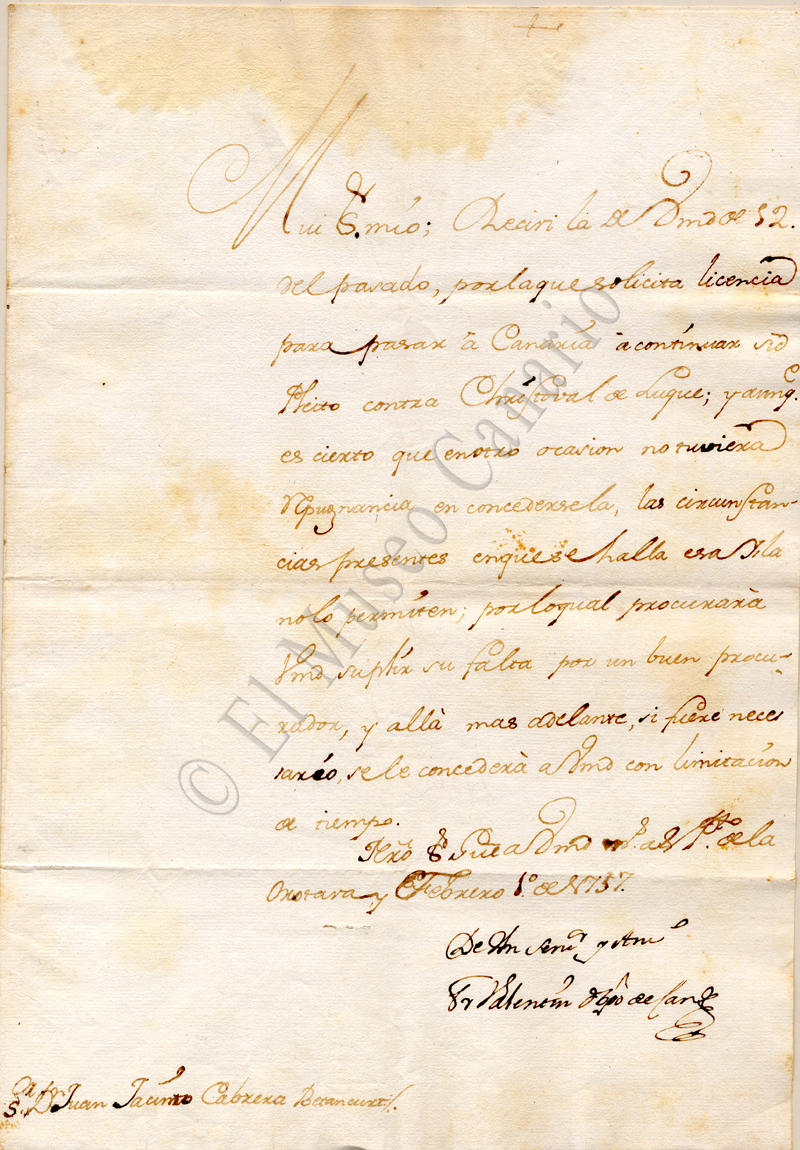 +
Mui S.or mio; Reciví la de Vmd de 12.
del pasado, por la que solicita licencia
para pasar à Canaria à continuar su
Pleito contra Christoval de Luque; y aunq.e
es cierto que en otro ocasion no tuviera
repugnancia en concedersela, las circunstan-
cias presentes en que se halla esa Isla
no lo permiten; por lo qual procurarà
Vmd suplir su falta por un buen procu-
rador, y allà mas adelante, si fuere neces
sario, se le concederà a Vmd con limitacion
de tiempo.
a Vmd m.s a.s P.to de la
Orotava y Febrero 1.o de 1757.
De Vm
Fr Valentin Obpo de Can.a
S.or D.n Juan Jacinto Cabrera Betancurt.
© El Museo Canario